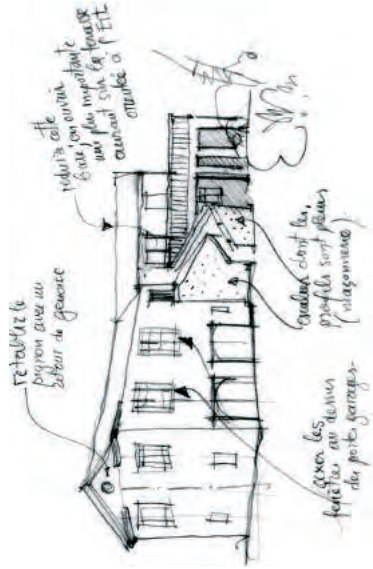 rétablir le
pignon avec un
retour de génoise
réduire cette
baie, en ouvrir
une plus importante
ouvrant sur la terrasse
orientée à l'Est
axer les
fenêtres au dessus
des portes garages.
escalier dont les
profils sont pleins
(maçonnerie)